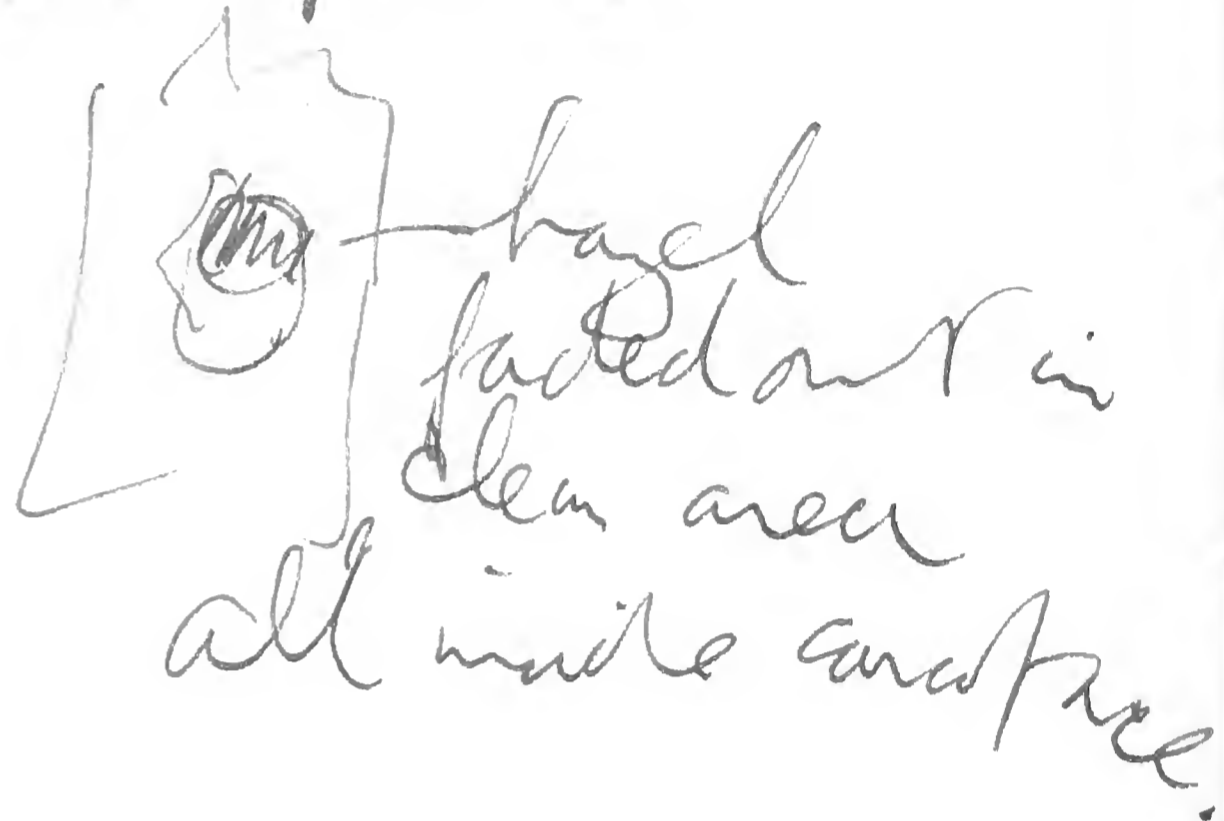 hazel
faded out in
clean area
all inside carapace.